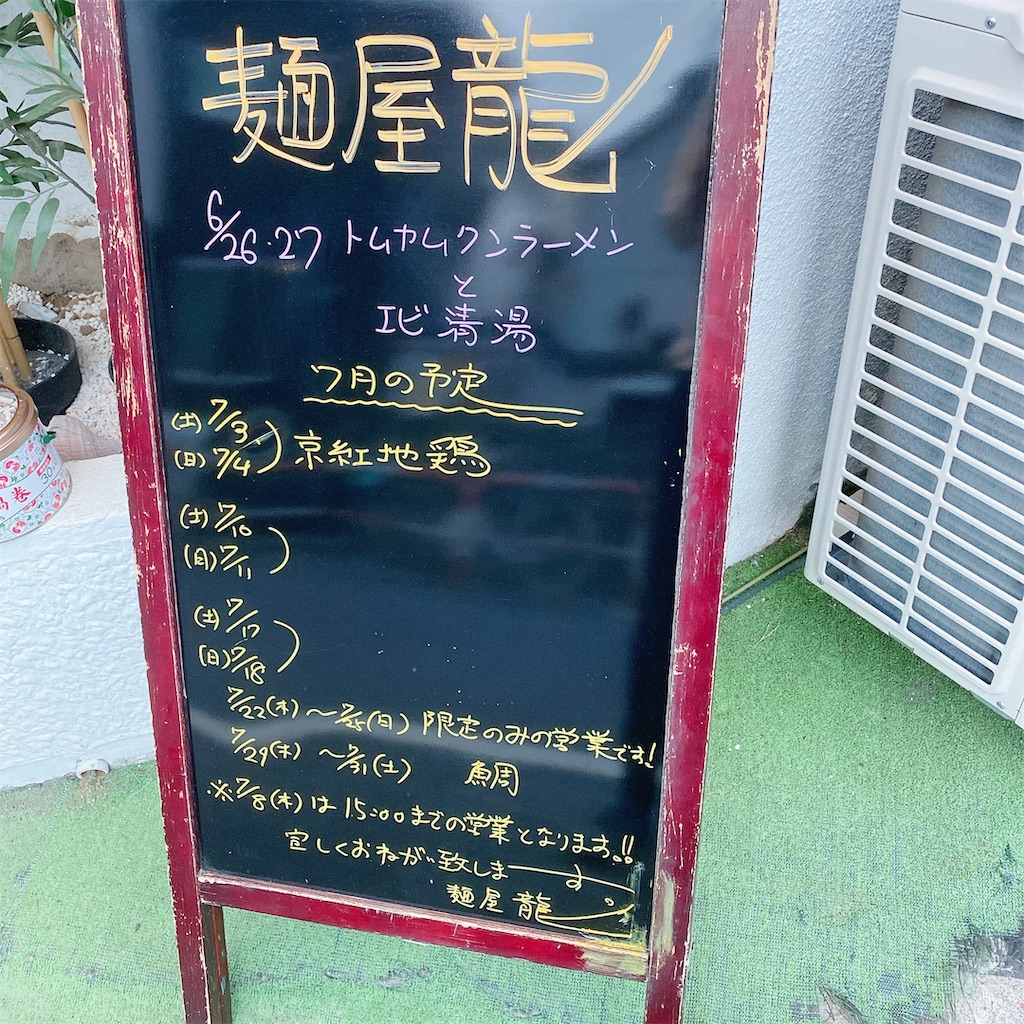 麺屋龍
6/26・27 トムヤムクンラーメン
と
エビ清湯
7月の予定
(土) 7/3
(日) 7/4 京紅地鶏
(土) 7/10
(日) 7/11
(土) 7/17
(日) 7/18
7/22(木) 〜 7/25(日) 限定のみの営業です!
7/29(木) 〜 7/31(土) 鯛周
※7/8(木)は15:00までの営業となります!!
宜しくおねがい致します。
麺屋 龍
30